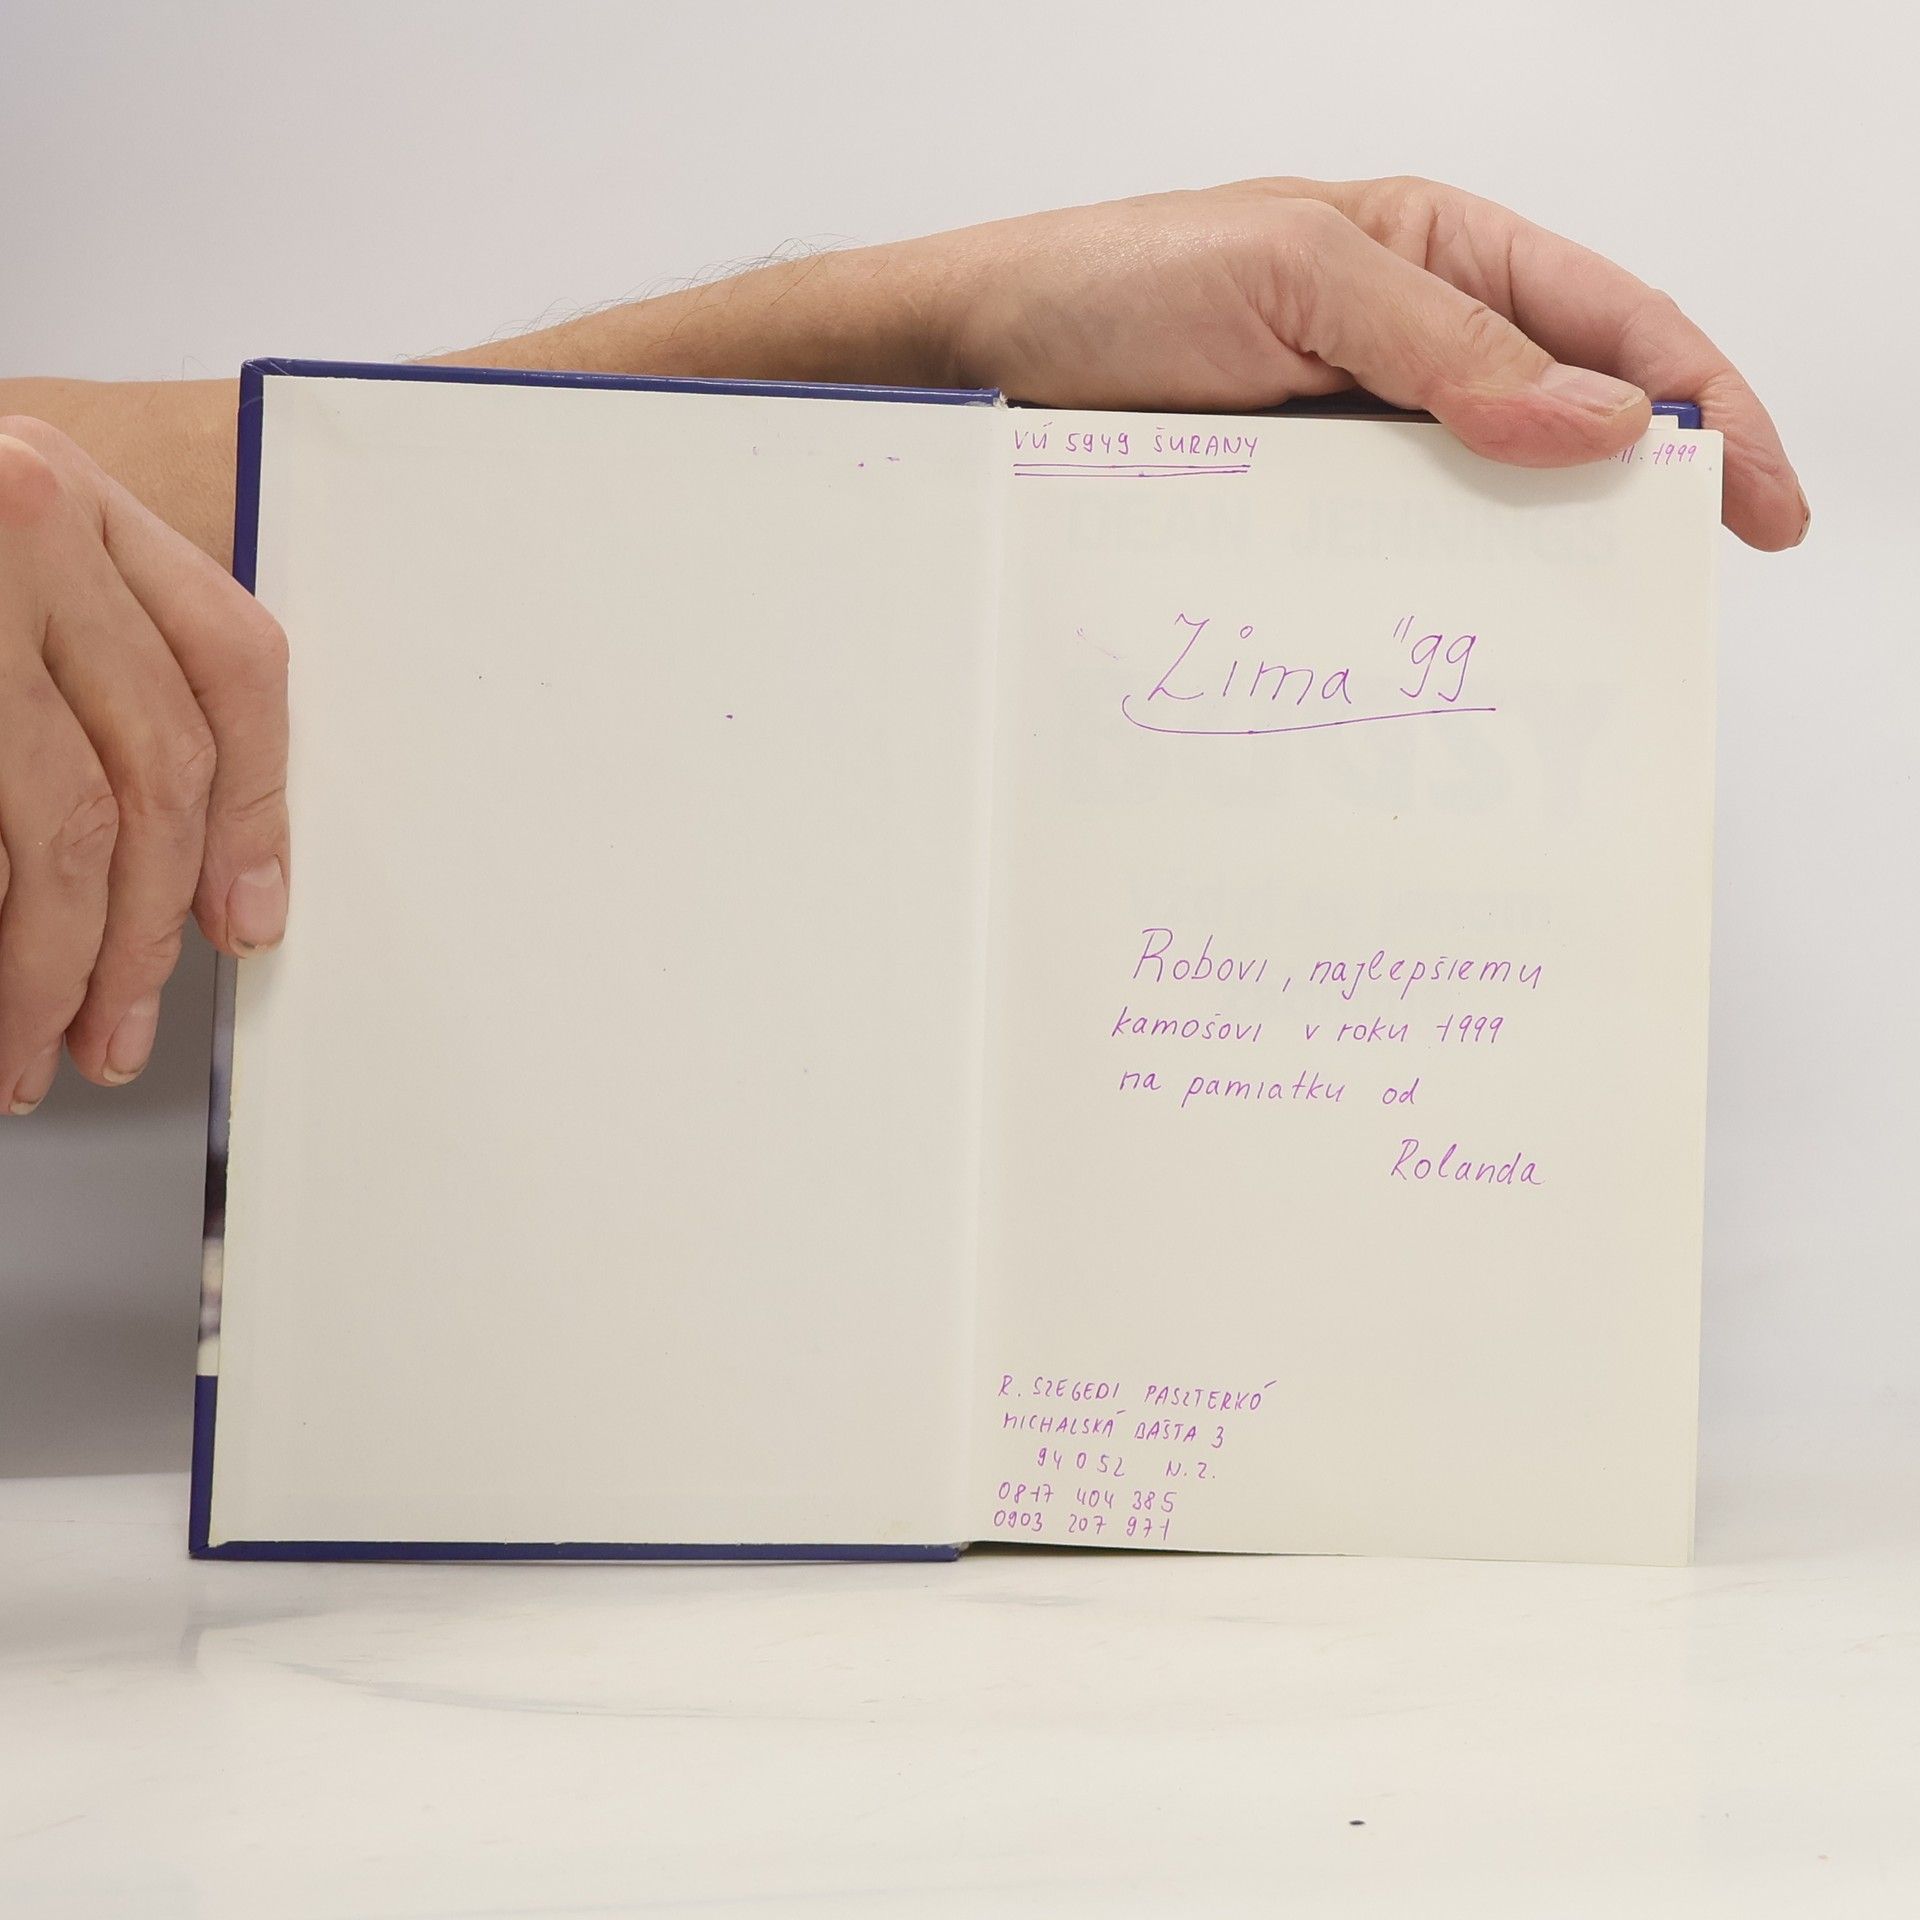 VÚ 5949 ŠURANY
II. 1999
Zima "99
Robovi, najlepšiemu
kamošovi v roku 1999
na pamiatku od
Rolanda
R. SZEGEDI PASZTERKÓ
MICHALSKÁ BAŠTA 3
940 52 N.Z.
0817 404 385
0903 207 971